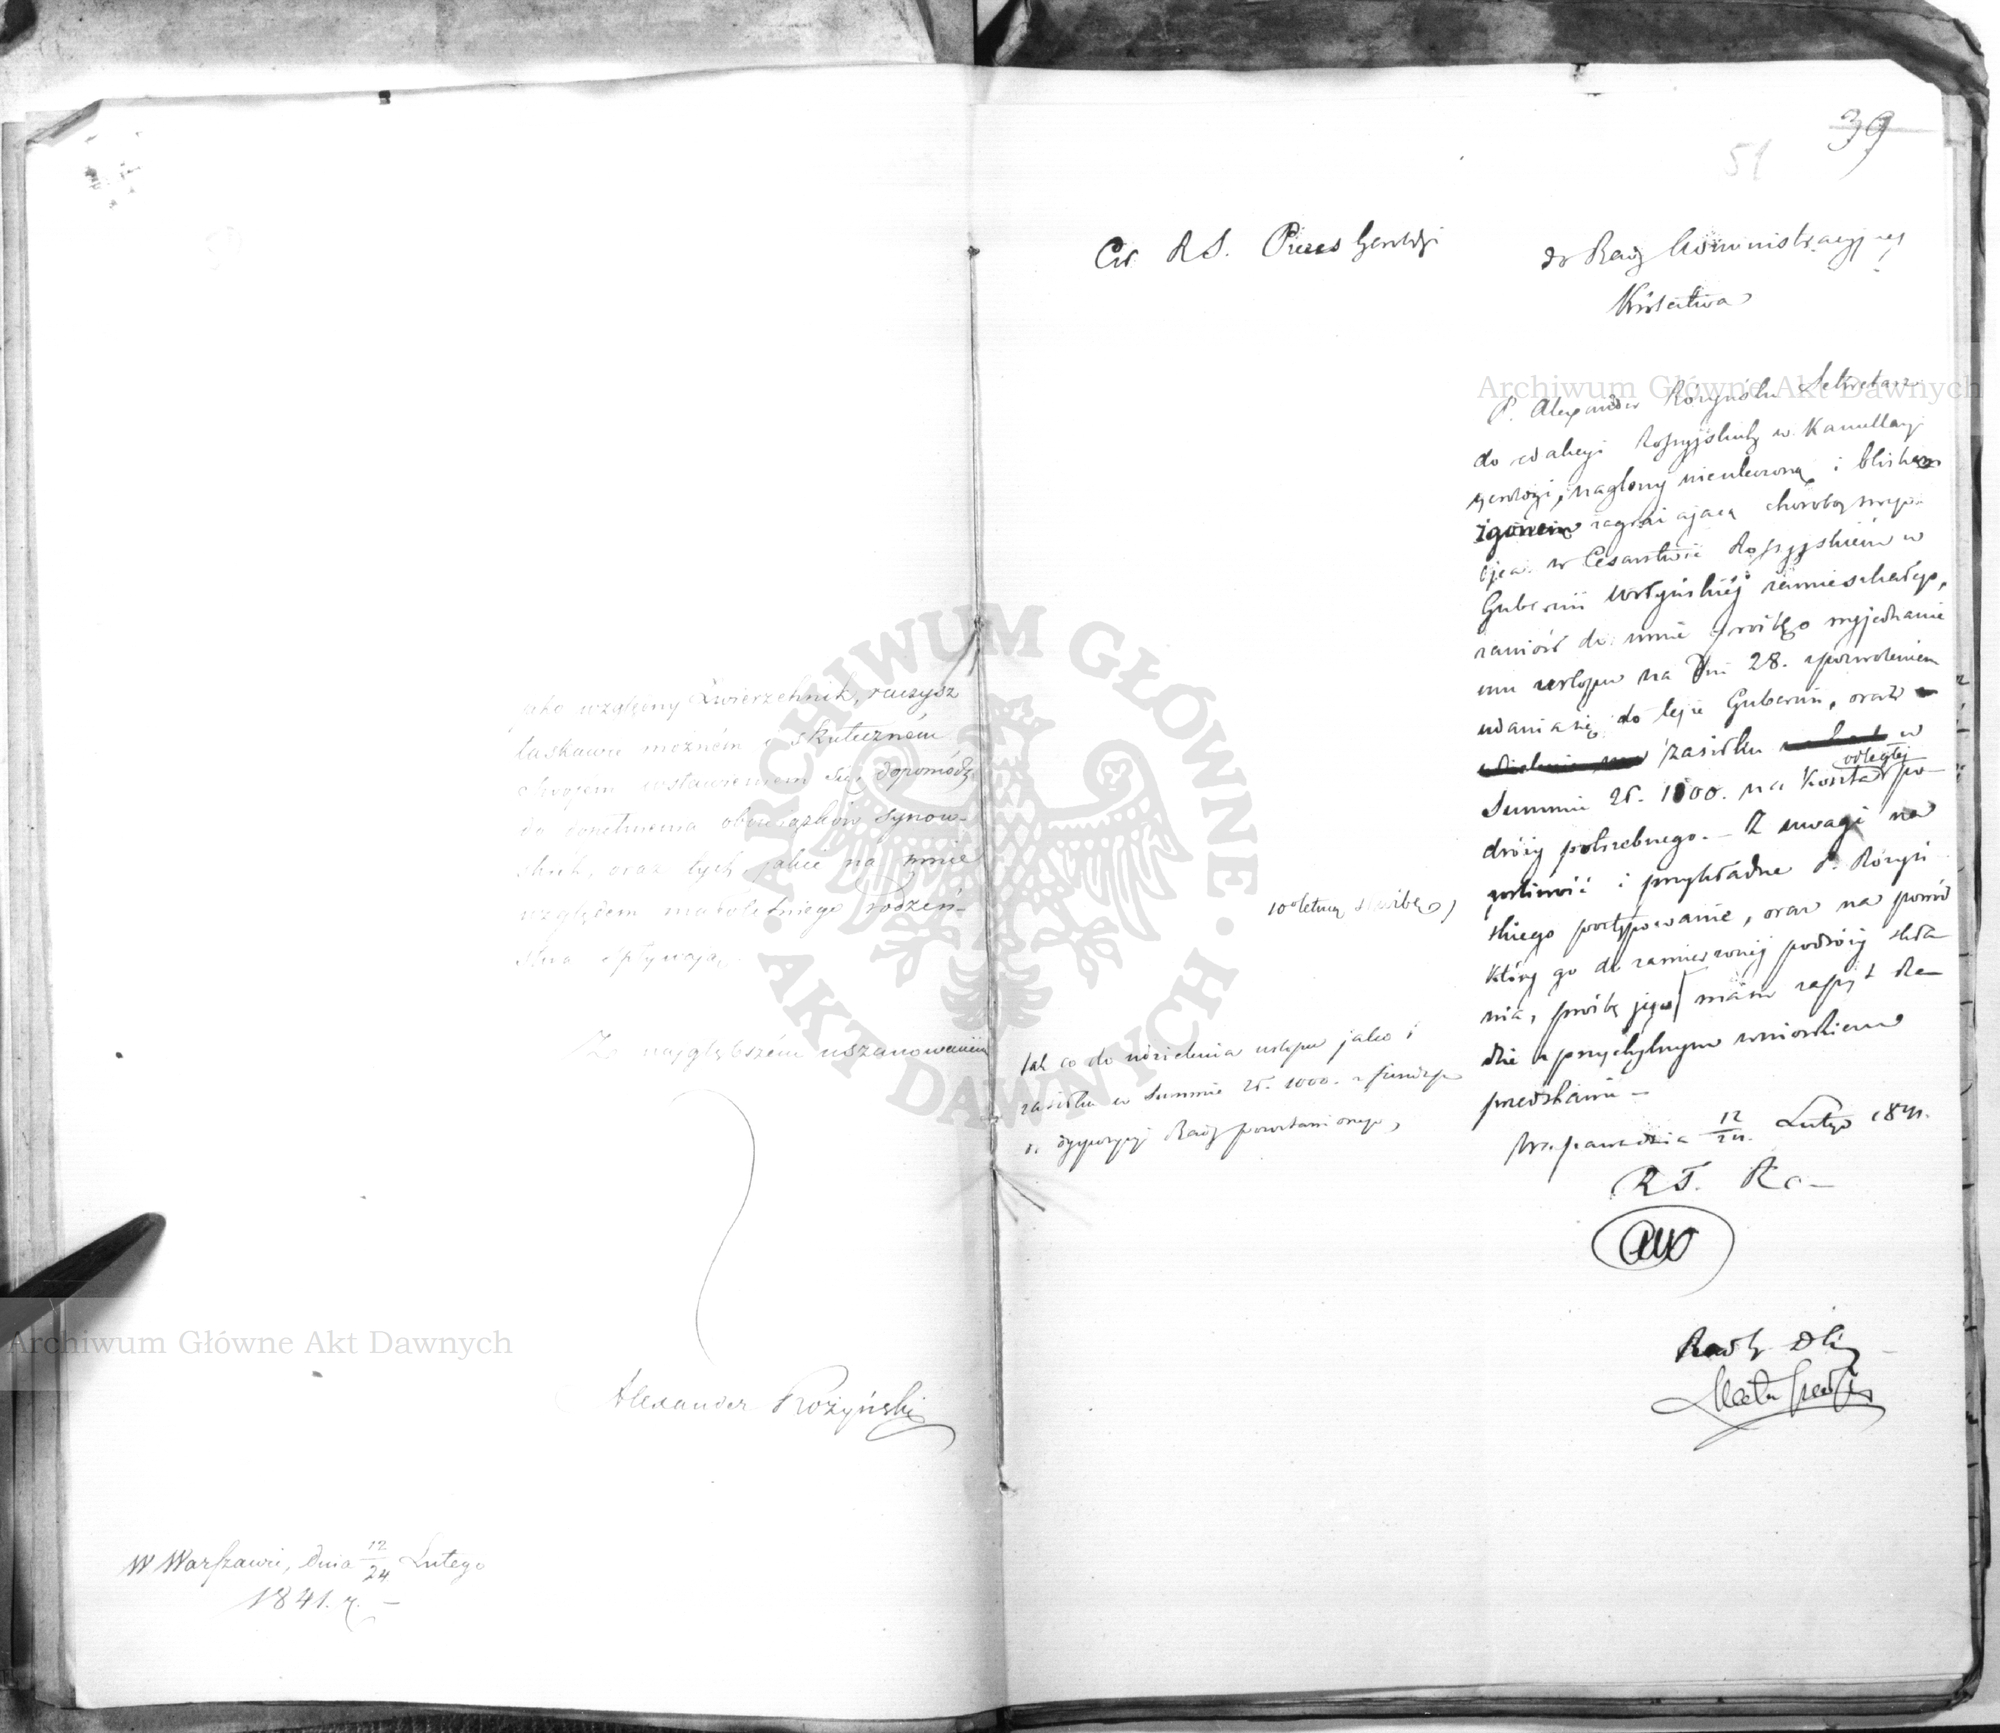 jako względny Zwierzchnik, raczysz
łaskawie możném i skuteczném
Swojém wstawieniem się, dopomódz
do dopełnienia obowiązków Synow-
skich, oraz tych, jakie na mnie
względem małoletniego rodzeń-
stwa wpływają.
Z najgłębszém uszanowaniem
Alexander Rożyński
W Warszawie, dnia 12/24 Lutego
1841. r. –
39
51
Cz. R. S. Prezes Heroldyi
do Rady Administracyjnej
Królestwa
P. Alexander Różyński Sekretarz
do redakcyi Rossyjskiéj w Kancellaryi
Heroldyi, naglony nieuleczoną i bliskim
zgonem zagrażającą chorobą swego
Ojca w Cesarstwie Rossyjskiém w
Gubernii Wołyńskiéj zamieszkałego,
zaniósł do mnie prośbę o wyjednanie
mu urlopu na dni 28. z pozwoleniem
udania się do tejże Gubernii, oraz
zasiłku w
Summie zł. 1000. na koszta odległéj po-
dróży potrzebnego. – Z uwagi na
gorliwość i przykładne P. Różyń
skiego postępowanie, oraz na powód
10 letnią służbę,
który go do zamierzonéj podróży skła-
nia, prośbę jego mam zaszczyt Ra-
dzie z przychylnym wnioskiem
przedstawić –
tak co do udzielenia urlopu jako i
zasiłku w Summie zł. 1000. z funduszu
do dyspozycyi Rady pozostawionego,
Warszawa dnia 12/24. Lutego 1841.
R. T.